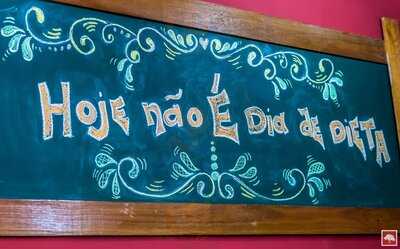 Hoje não É Dia de DiETA